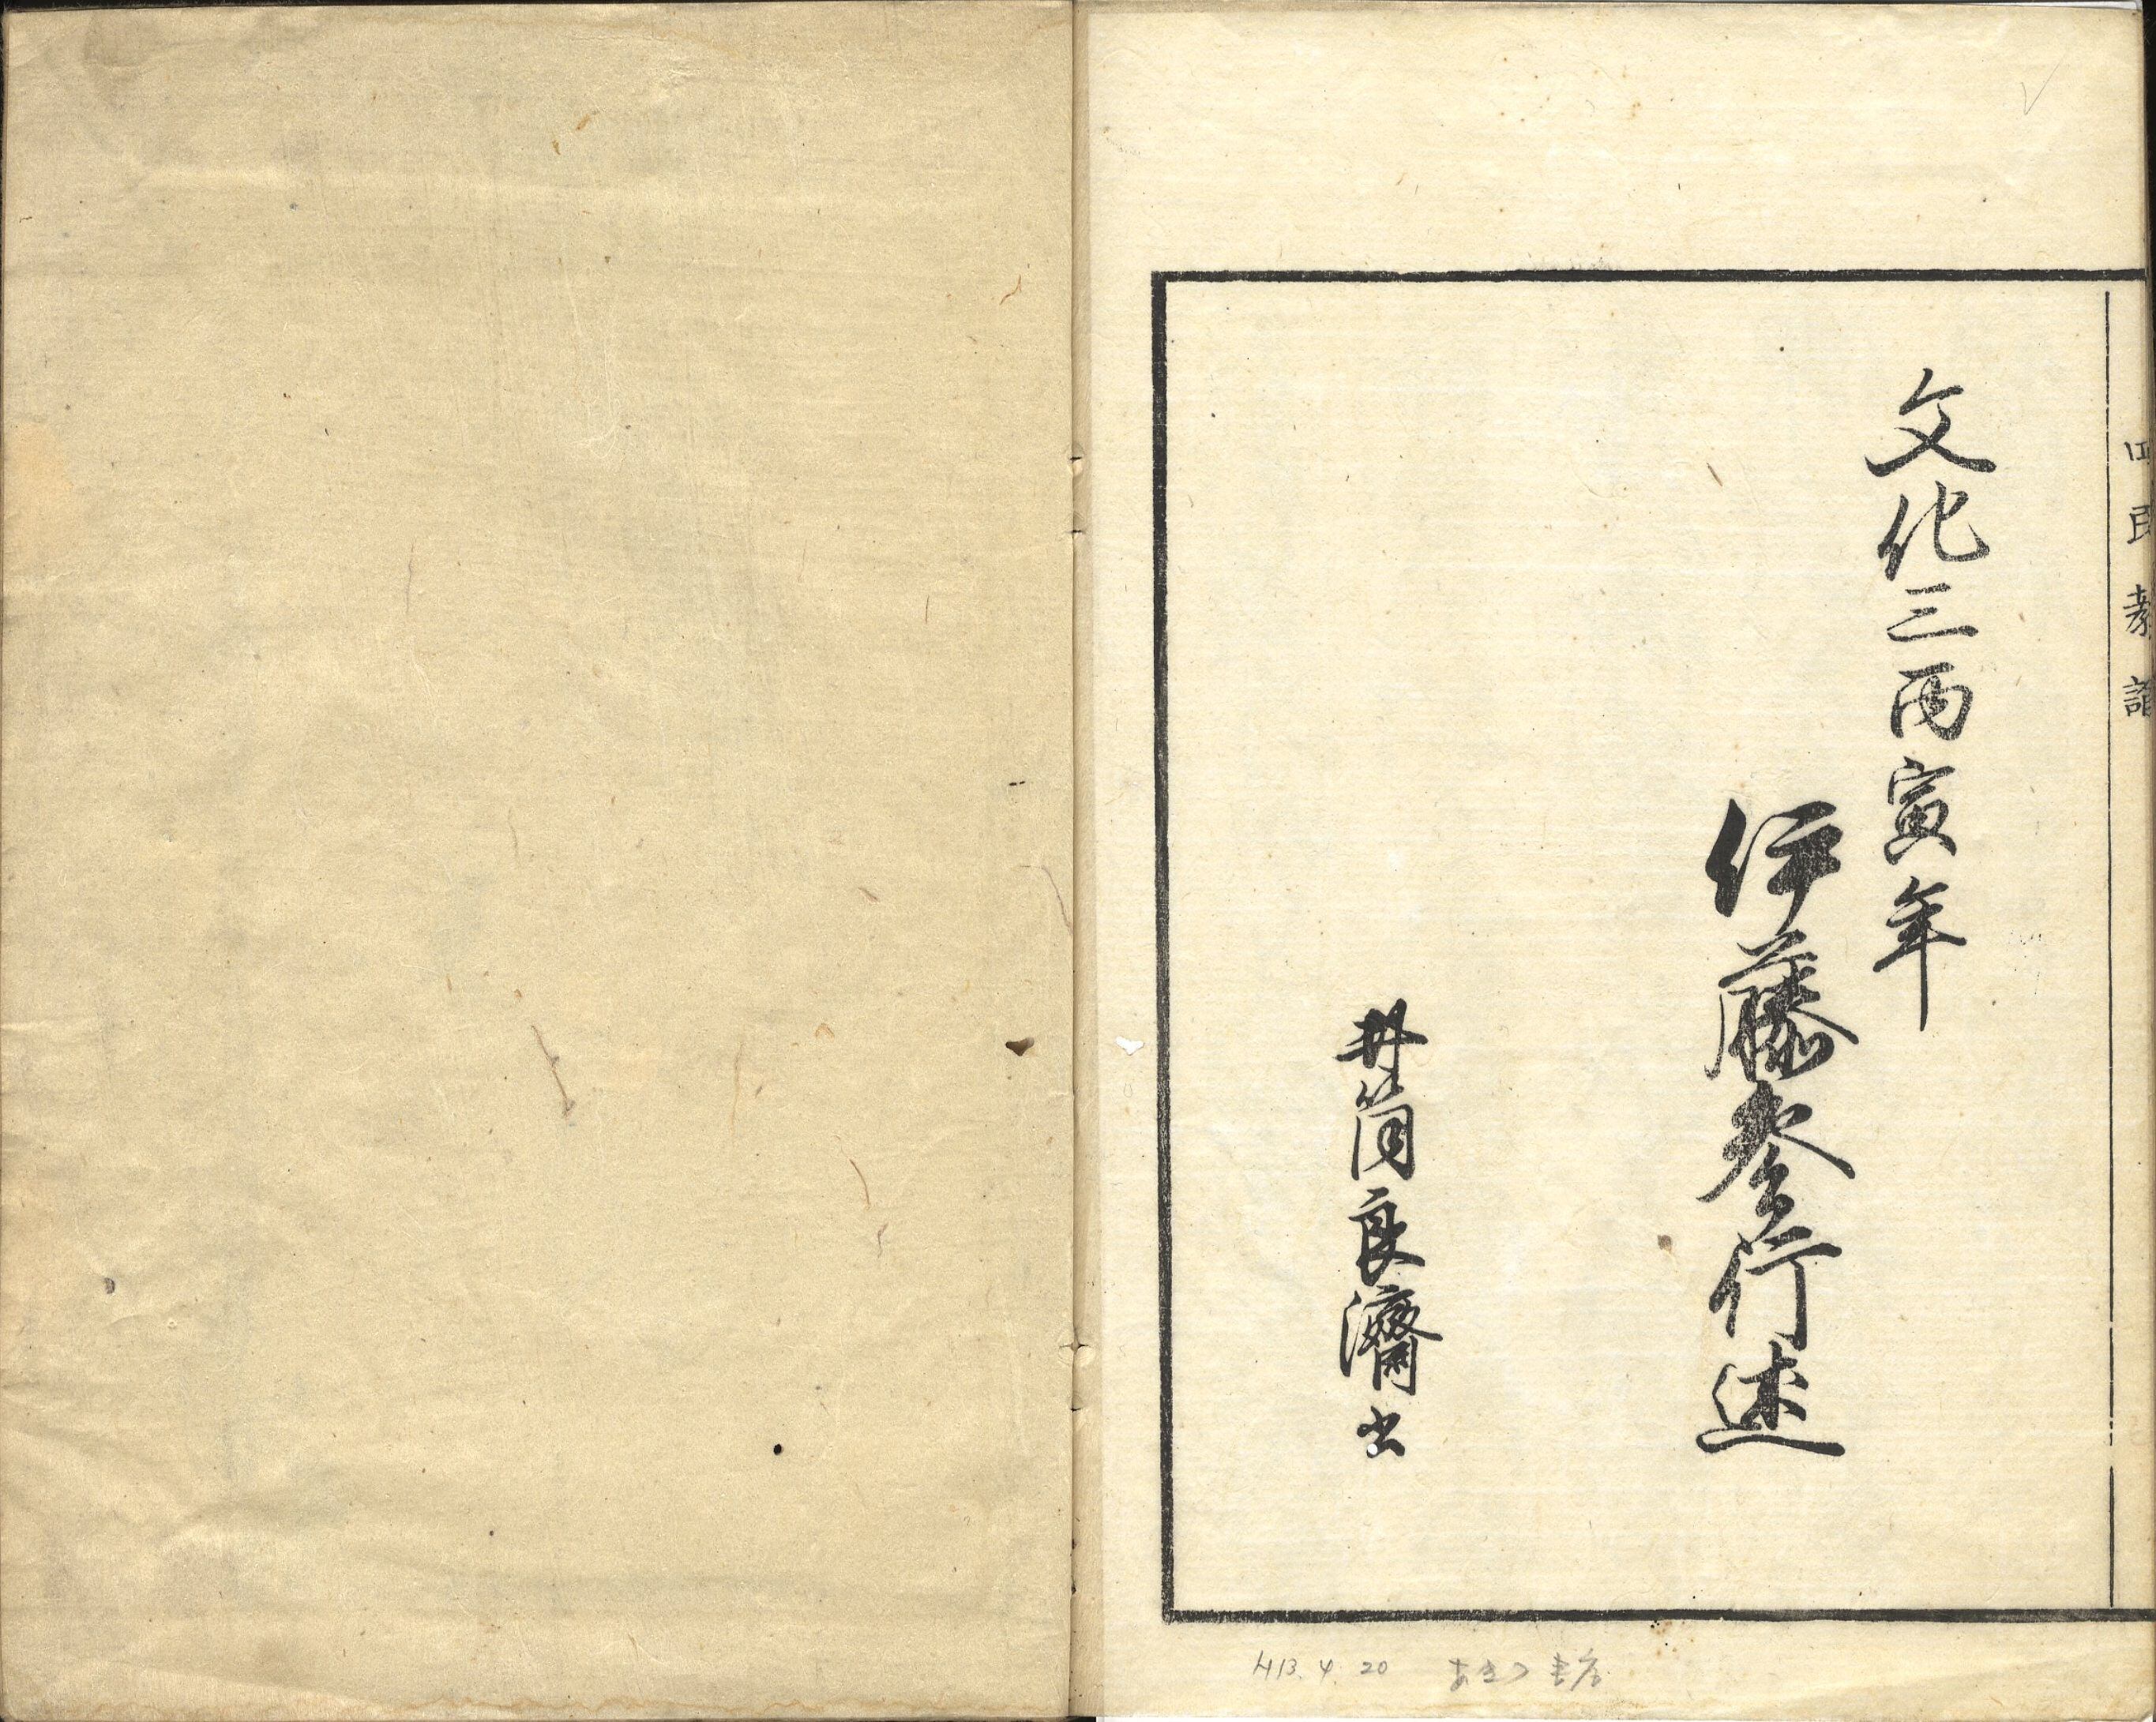 四民教諭
文化三丙寅年
伊藤参行述
井筒良濟書
H13.4.20 あきつ書店